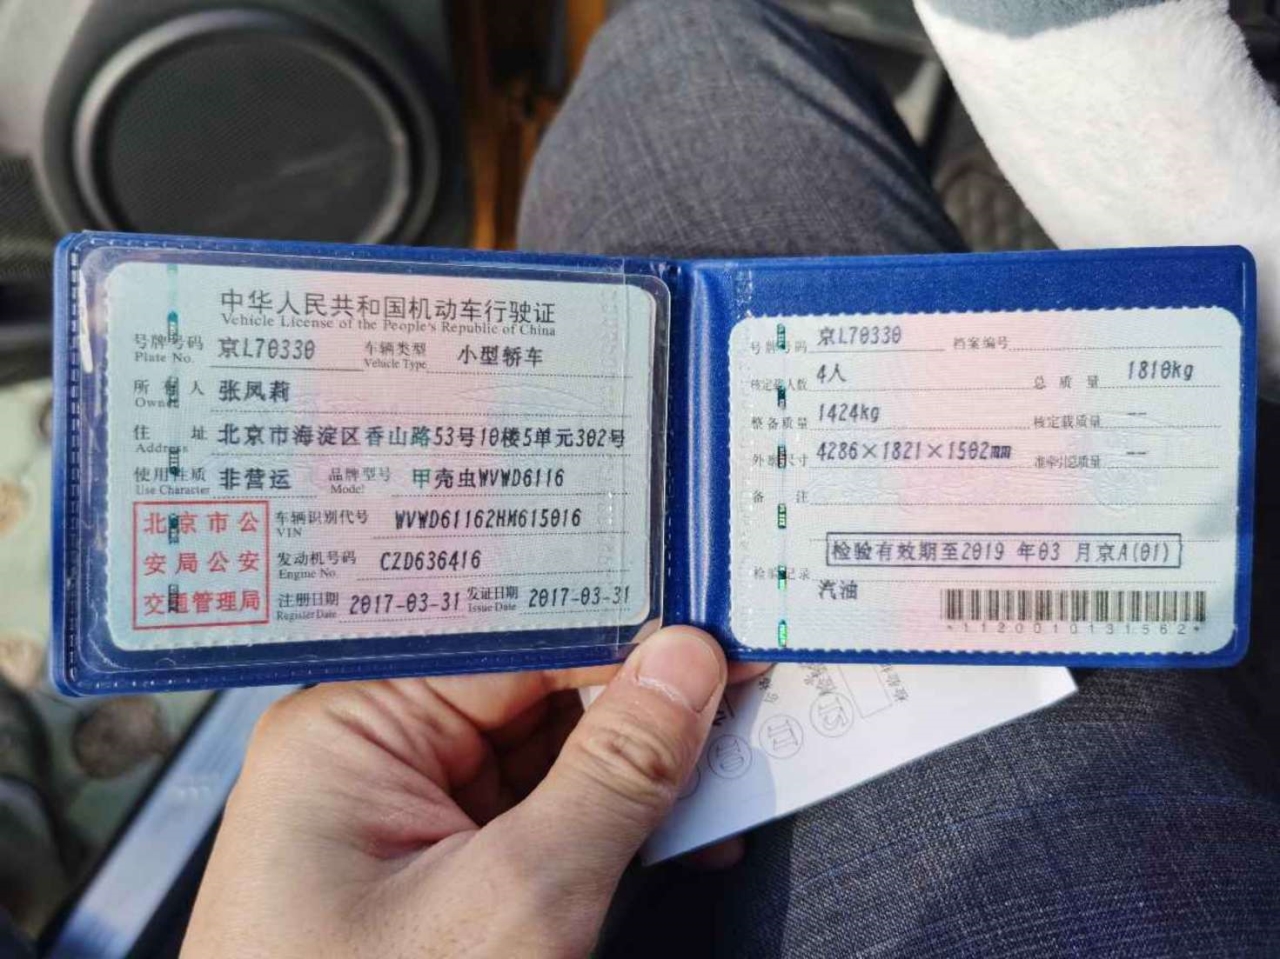 中华人民共和国机动车行驶证
Vehicle License of the People's Republic of China
号牌号码 京L70330 车辆类型 小型轿车
Plate No. Vehicle Type
所有人 张凤莉
Owner
住址 北京市海淀区香山路53号10楼5单元302号
Address
使用性质 非营运 品牌型号 甲壳虫WVWD6116
Use Character Model
北京市公
安局公安
交通管理局
车辆识别代号 WVWD61162HM615016
VIN
发动机号码 CZD636416
Engine No.
注册日期 2017-03-31 发证日期 2017-03-31
Register Date Issue Date
号牌号码 京L70330 档案编号
核定载人数 4人 总质量 1810kg
整备质量 1424kg 核定载质量 --
外廓尺寸 4286×1821×1502mm 准牵引总质量 --
备注
检验有效期至2019 年03 月京A(01)
检验记录
汽油
*1120010131562*